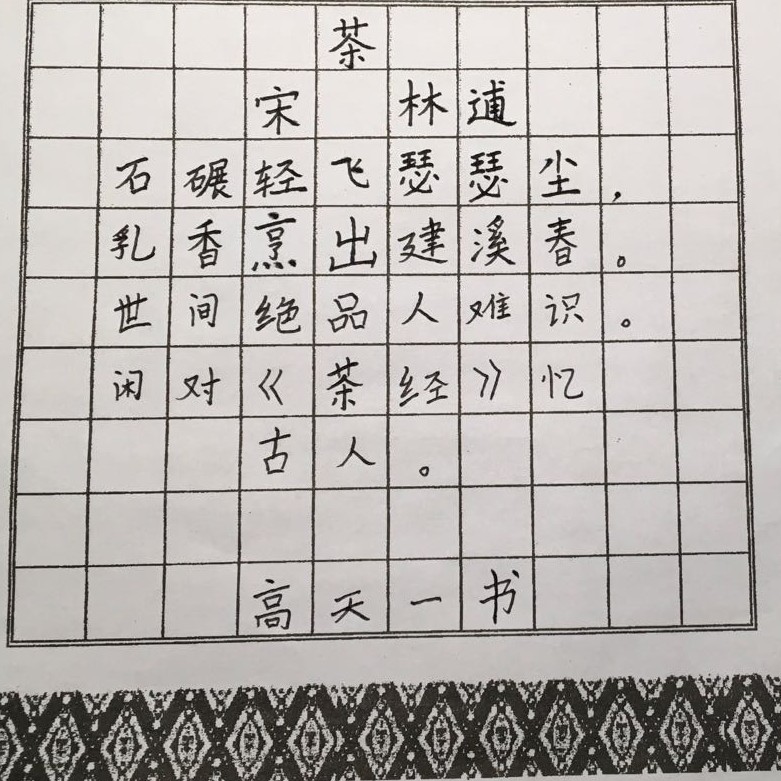 茶
宋 林逋
石碾轻飞瑟瑟尘，
乳香烹出建溪春。
世间绝品人难识。
闲对《茶经》忆
古人。
高天一书